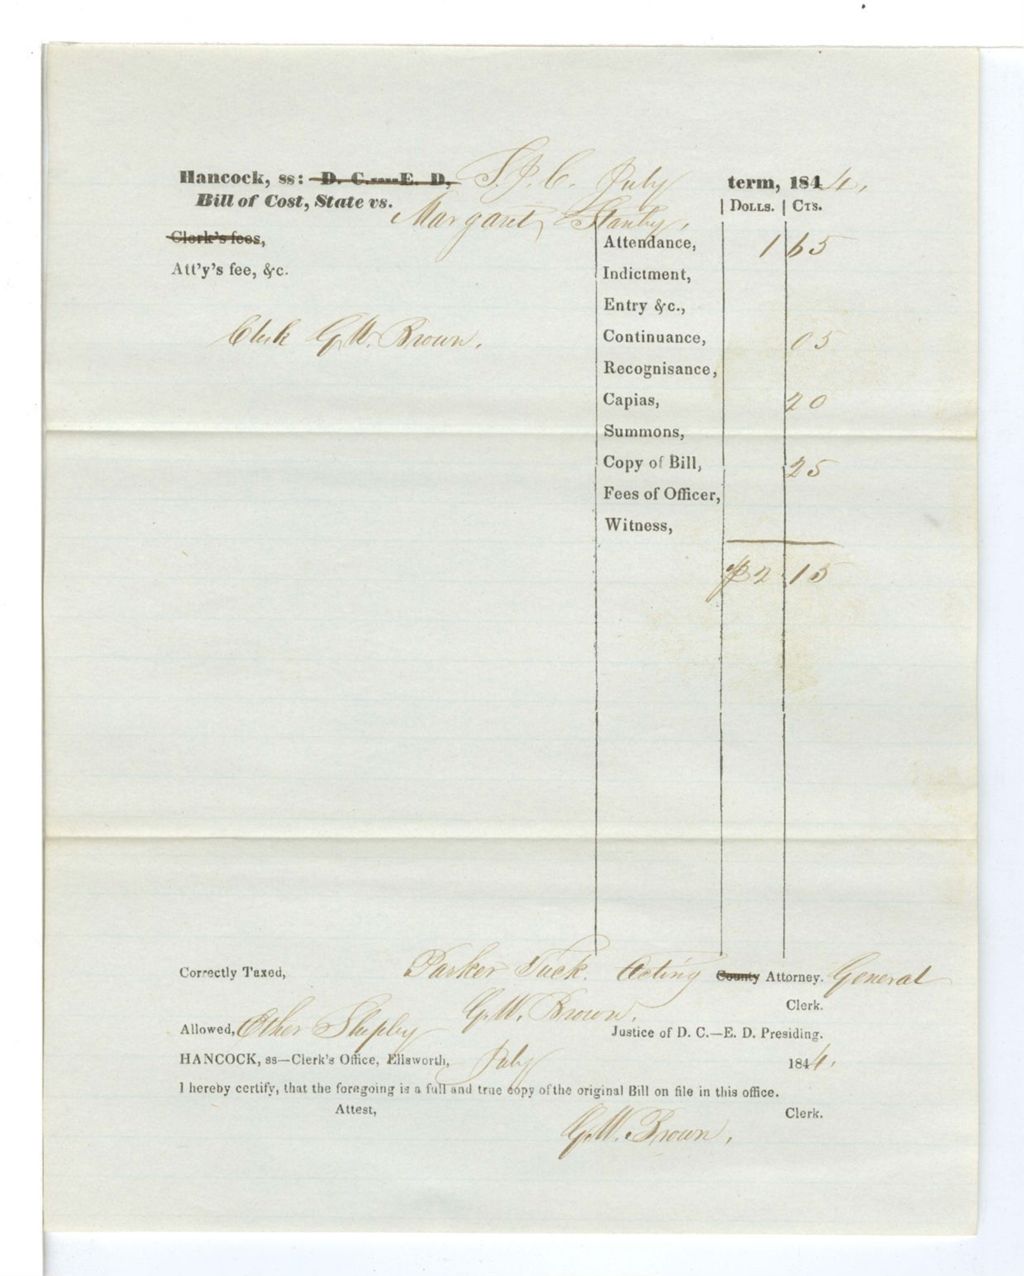 Hancock, ss: D. C.----E. D, S. J. C. July term, 1844.
Bill of Cost, State vs. Margaret Stanley. | DOLLS. | CTS.
Clerk's fees,
Attendance, 1 65
Att'y's fee, &c.
Indictment,
Entry &c.,
Clerk G. W. Brown.
Continuance, 05
Recognisance,
Capias, 20
Summons,
Copy of Bill, 25
Fees of Officer,
Witness,
$2 15
Correctly Taxed, Parker Tuck. Acting County Attorney. General
G. W. Brown. Clerk.
Allowed, Ether Shepley Justice of D. C.—E. D. Presiding.
HANCOCK, ss—Clerk's Office, Ellsworth, July 1844.
I hereby certify, that the foregoing is a full and true copy of the original Bill on file in this office.
Attest, Clerk.
G. W. Brown,